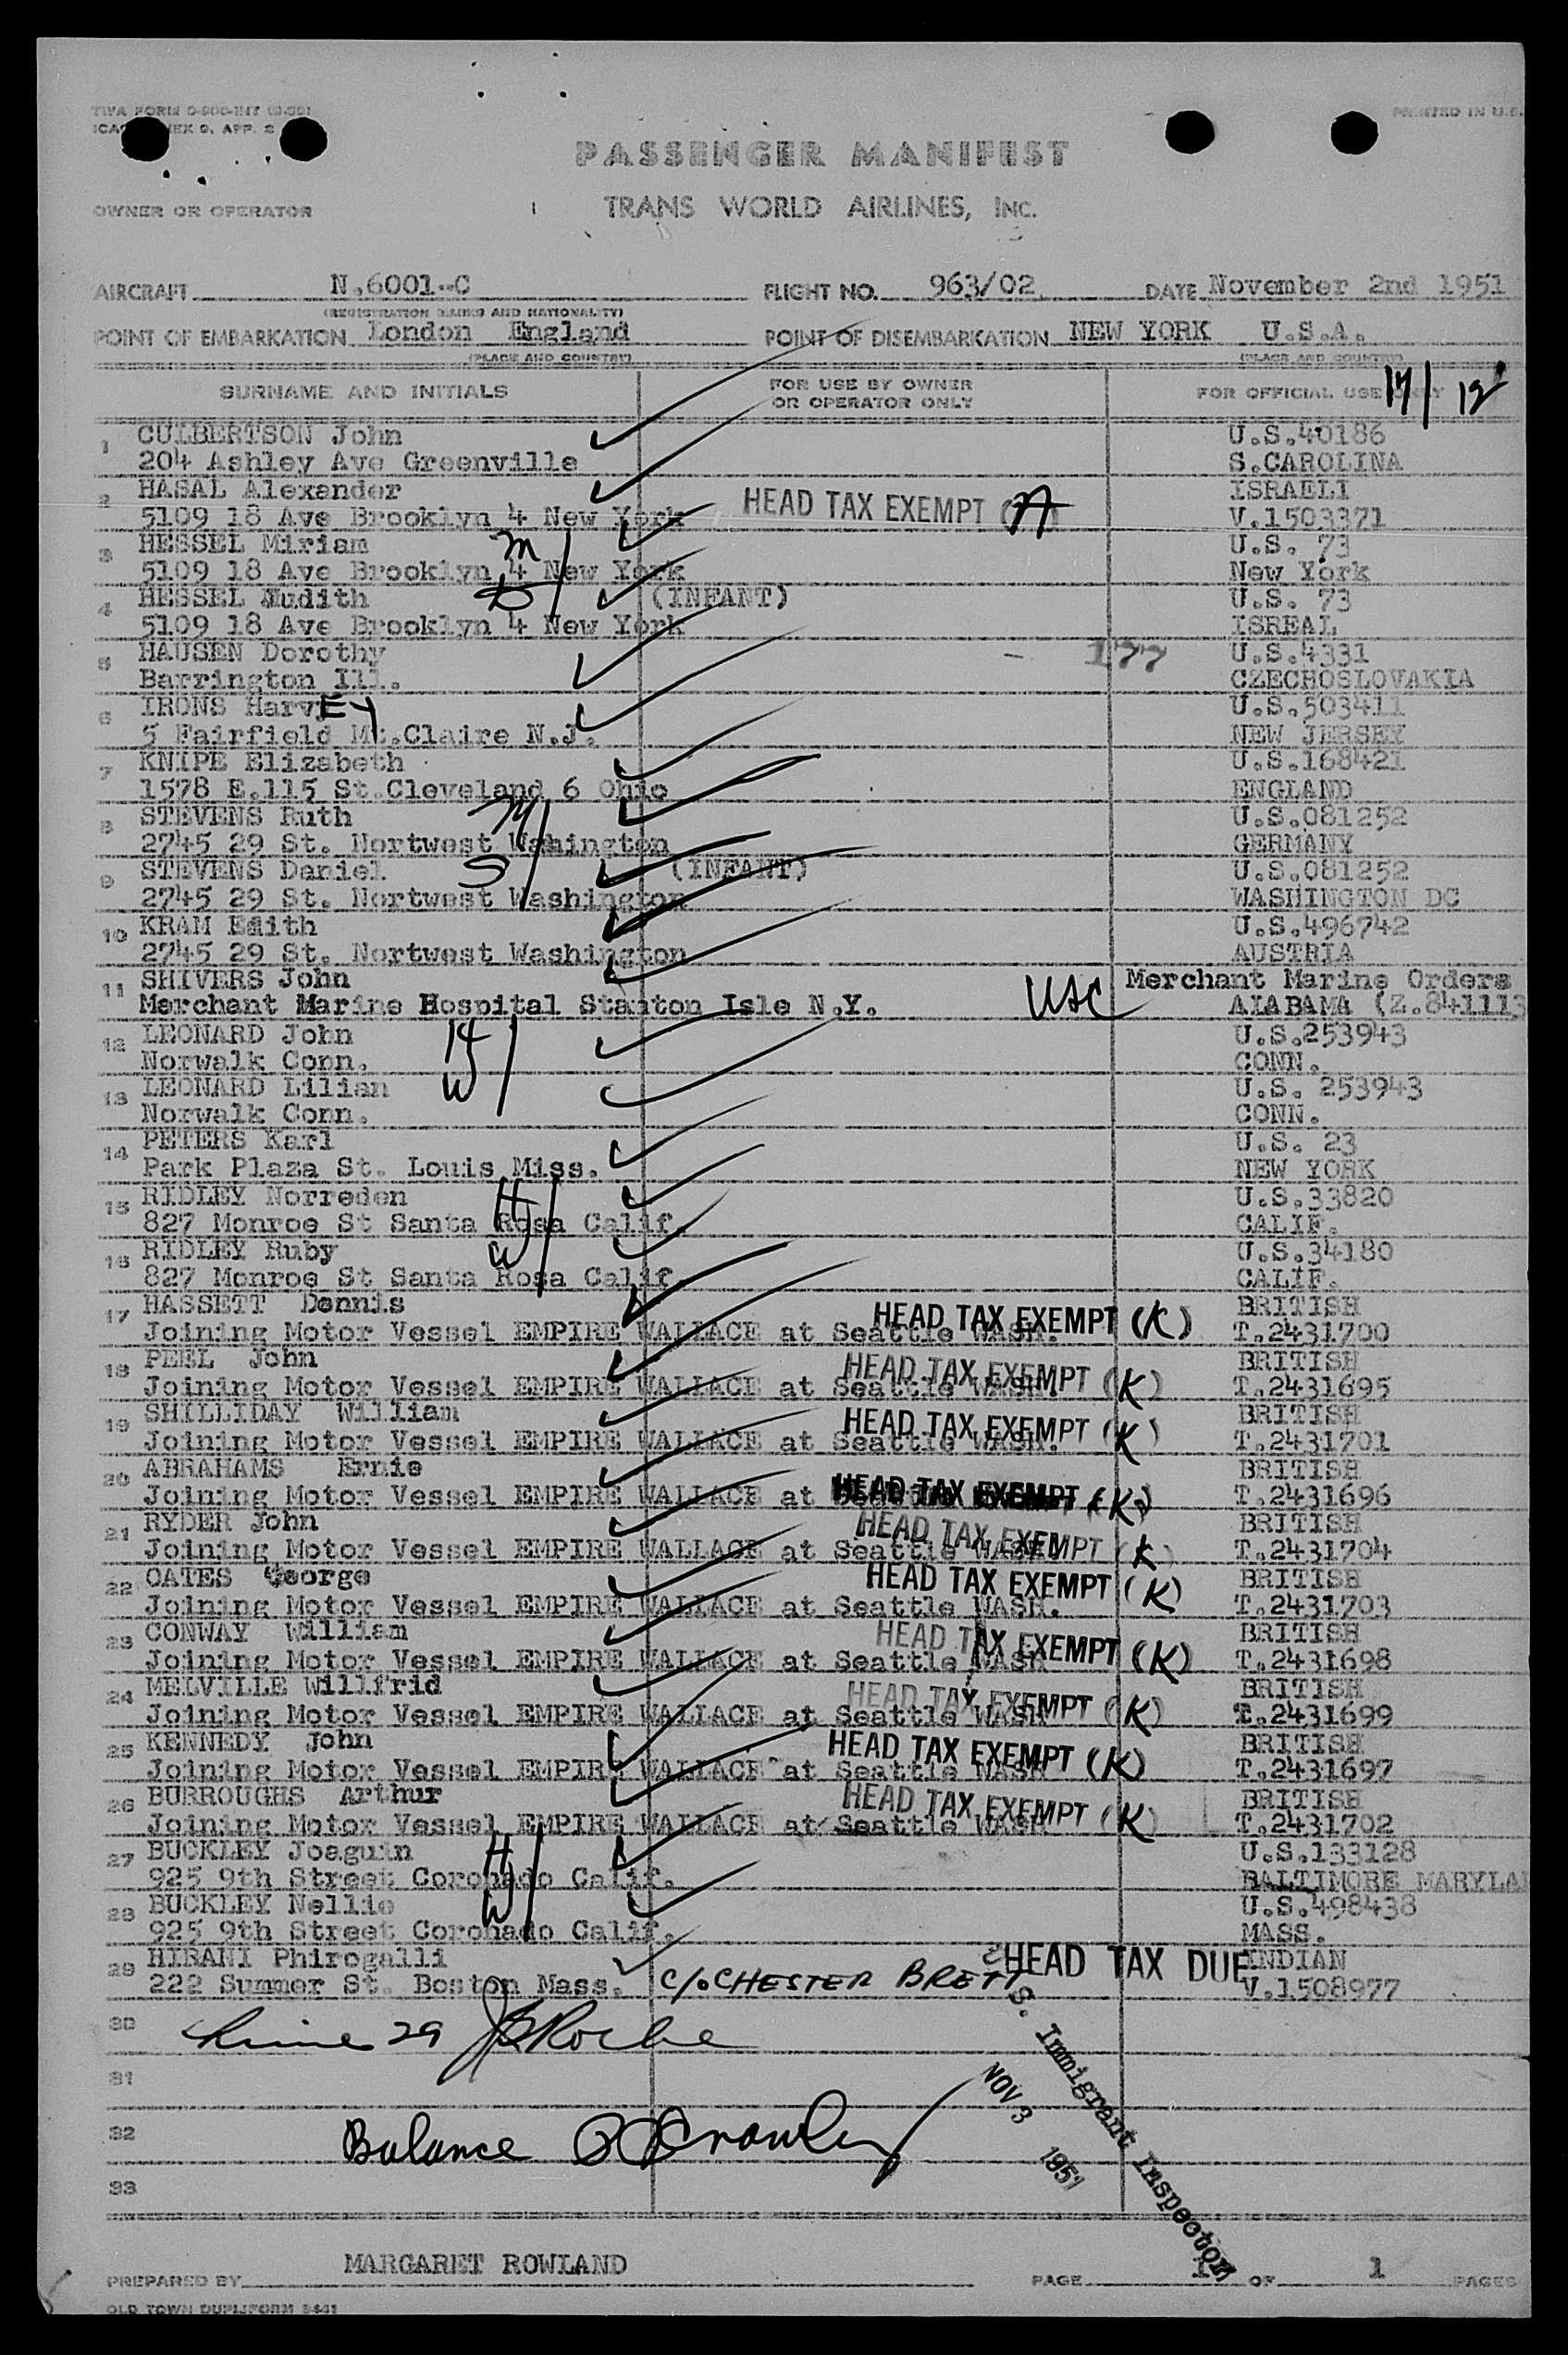 TWA FORM O-800-INT
PRINTED IN U.S.
PASSENGER MANIFEST
OWNER OR OPERATOR
TRANS WORLD AIRLINES, INC.
AIRCRAFT N.6001-C FLIGHT NO. 963/02 DATE November 2nd 1951
(REGISTRATION MARKS AND NATIONALITY)
POINT OF EMBARKATION London England POINT OF DISEMBARKATION NEW YORK U.S.A.
(PLACE AND COUNTRY) (PLACE AND COUNTRY)
SURNAME AND INITIALS FOR USE BY OWNER OR OPERATOR ONLY FOR OFFICIAL USE ONLY 17/12
1 CULBERTSON John U.S.40186
204 Ashley Ave Greenville S.CAROLINA
2 HASAL Alexander ISRAELI
5109 18 Ave Brooklyn 4 New York HEAD TAX EXEMPT (A) V.1503371
3 HESSEL Miriam M U.S. 73
5109 18 Ave Brooklyn 4 New York New York
4 HESSEL Judith D (INFANT) U.S. 73
5109 18 Ave Brooklyn 4 New York ISREAL
5 HAUSEN Dorothy 177 U.S.4331
Barrington Ill. CZECHOSLOVAKIA
6 IRONS HarvEY U.S.503411
5 Fairfield Mt.Claire N.J. NEW JERSEY
7 KNIPE Elizabeth U.S.168421
1578 E.115 St.Cleveland 6 Ohio ENGLAND
8 STEVENS Ruth M U.S.081252
2745 29 St. Nortwest Wahington GERMANY
9 STEVENS Daniel S (INFANT) U.S.081252
2745 29 St. Nortwest Washington WASHINGTON DC
10 KRAM Edith U.S.496742
2745 29 St. Nortwest Washington AUSTRIA
11 SHIVERS John Merchant Marine Orders
Merchant Marine Hospital Stanton Isle N.Y. USC ALABAMA (Z.841113
12 LEONARD John H U.S.253943
Norwalk Conn. CONN.
13 LEONARD Lilian W U.S. 253943
Norwalk Conn. CONN.
14 PETERS Karl U.S. 23
Park Plaza St. Louis Miss. NEW YORK
15 RIDLEY Norreden H U.S.33820
827 Monroe St Santa Rosa Calif. CALIF.
16 RIDLEY Ruby W U.S.34180
827 Monroe St Santa Rosa Calif. CALIF.
17 HASSETT Dennis HEAD TAX EXEMPT (K) BRITISH
Joining Motor Vessel EMPIRE WALLACE at Seattle WASH. T.2431700
18 PEEL John HEAD TAX EXEMPT (K) BRITISH
Joining Motor Vessel EMPIRE WALLACE at Seattle WASH. T.2431695
19 SHILLIDAY William HEAD TAX EXEMPT (K) BRITISH
Joining Motor Vessel EMPIRE WALLACE at Seattle WASH. T.2431701
20 ABRAHAMS Ernie BRITISH
Joining Motor Vessel EMPIRE WALLACE at HEAD TAX EXEMPT (K) T.2431696
21 RYDER John HEAD TAX EXEMPT (K) BRITISH
Joining Motor Vessel EMPIRE WALLACE at Seattle WASH T.2431704
22 OATES George HEAD TAX EXEMPT (K) BRITISH
Joining Motor Vessel EMPIRE WALLACE at Seattle WASH. T.2431703
23 CONWAY William HEAD TAX EXEMPT (K) BRITISH
Joining Motor Vessel EMPIRE WALLACE at Seattle WASH T.2431698
24 MELVILLE Willfrid HEAD TAX EXEMPT (K) BRITISH
Joining Motor Vessel EMPIRE WALLACE at Seattle WASH T.2431699
25 KENNEDY John HEAD TAX EXEMPT (K) BRITISH
Joining Motor Vessel EMPIRE WALLACE at Seattle WASH T.2431697
26 BURROUGHS Arthur HEAD TAX EXEMPT (K) BRITISH
Joining Motor Vessel EMPIRE WALLACE at Seattle WASH T.2431702
27 BUCKLEY Joaguin H U.S.133128
925 9th Street Coronado Calif. BALTIMORE MARYLAN
28 BUCKLEY Nellie W U.S.498438
925 9th Street Coronado Calif. MASS.
29 HIRANI Phirogalli HEAD TAX DUE INDIAN
222 Summer St. Boston Mass. C/o CHESTER BRETT V.1508977
30 Line 29 Roche
S. Immigrant Inspector
NOV 3 1951
31
32 Balance Crowley
33
PREPARED BY MARGARET ROWLAND PAGE 1 OF 1 PAGES
OLD TOWN DUPLIFORM